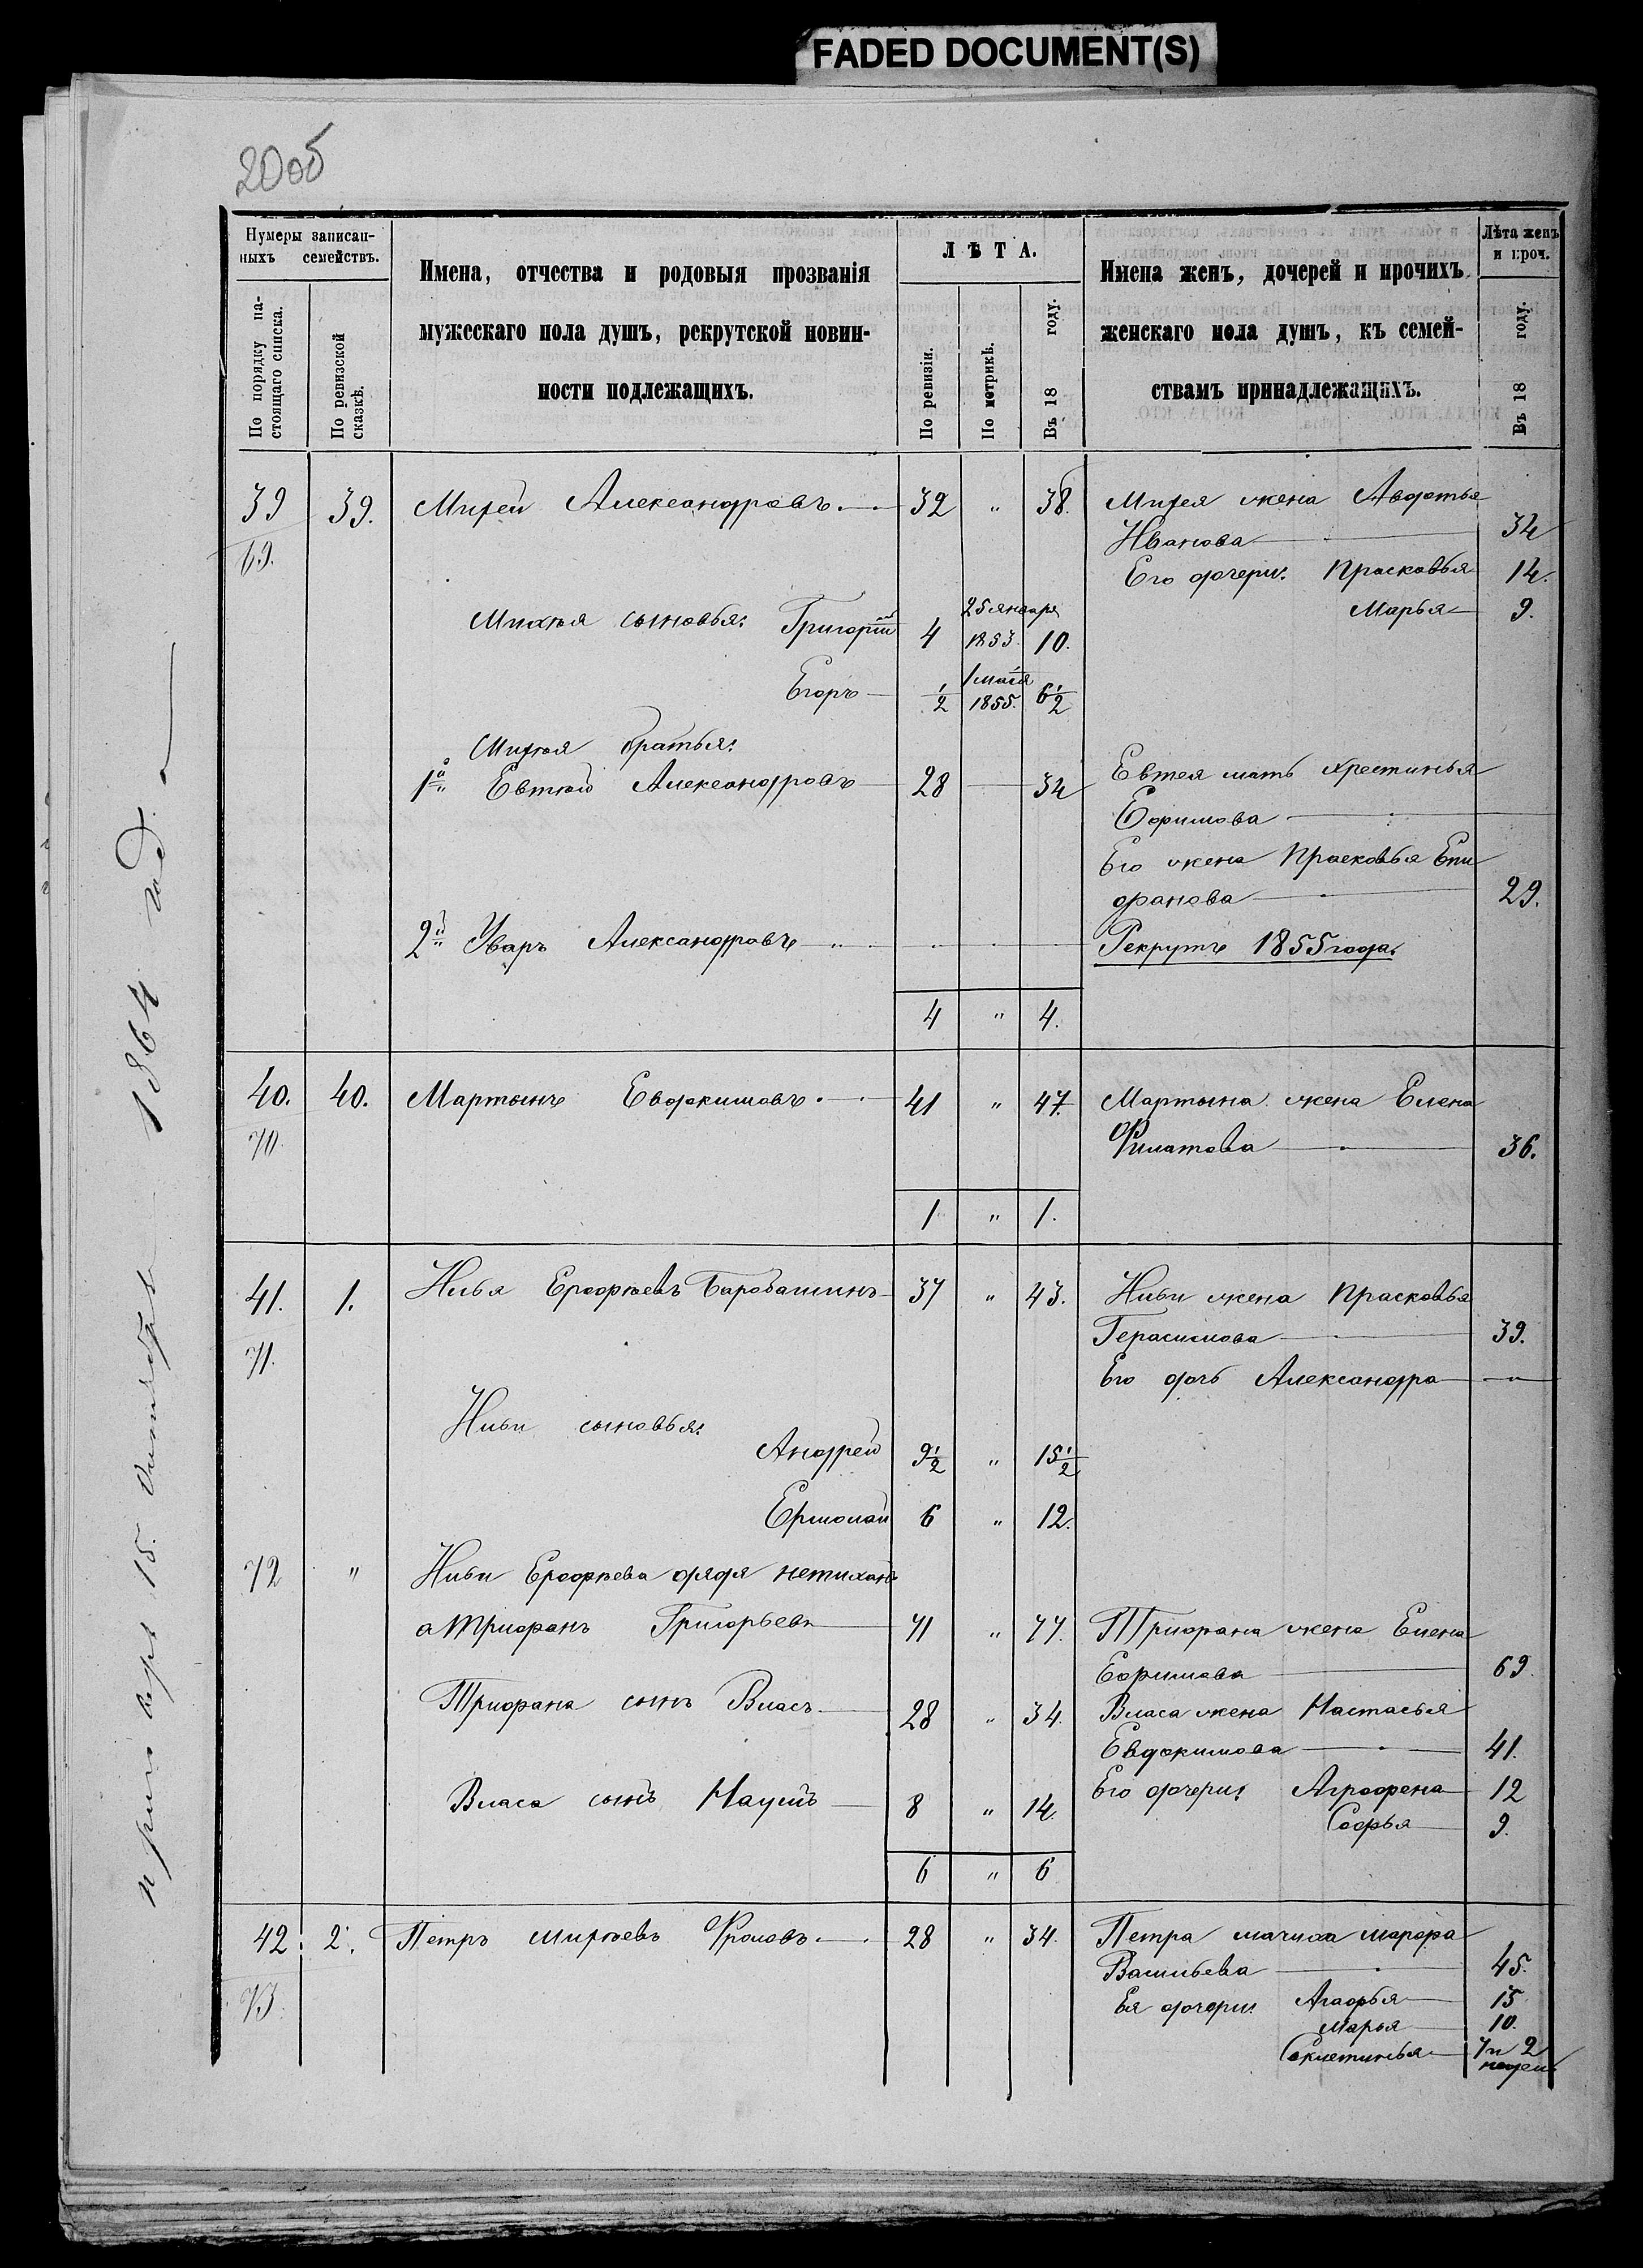 FADED DOCUMENT(S)
20об
Нумеры записан-
ныхъ семействъ.
По порядку на-
стоящаго списка.
По ревизской
сказкѣ.
Имена, отчества и родовыя прозванія
мужескаго пола душъ, рекрутской повин-
ности подлежащихъ.
ЛѢТА.
По ревизіи.
По метрикѣ.
Въ 18 году.
Имена женъ, дочерей и прочихъ
женскаго пола душъ, къ семей-
ствамъ принадлежащихъ.
Лѣта женъ
и проч.
Въ 18 году.
39 39. Михей Александровъ 32 " 38. Михея жена Авдотья
69. Иванова 34
Его дочери: Прасковья 14.
Марья 9.
Михѣя сыновья: Григорій 4 25 января 1853. 10.
Егоръ 1/2 1 мая 1855. 6 1/2
Михѣя братья:
1й Евтѣй Александровъ 28 34 Евтея мать Хрестинья
Ефимова
Его жена Прасковья Епи
фанова 29.
2й Уваръ Александровъ " Рекрутъ 1855 года.
4 " 4.
40. 40. Мартынъ Евдокимовъ 41 " 47 Мартына жена Елена
70. Филатова 36.
1 " 1.
41. 1. Илья Ерофѣевъ Барабашинъ 37 " 43. Ильи жена Прасковья
71. Герасимова 39.
Его дочь Александра "
Ильи сыновья:
Андрей 9 1/2 " 15 1/2
Ермолай 6 " 12.
72 " Ильи Ерофѣева дядя
а Трифанъ Григорьевъ 71 " 77. Трифана жена Елена
Ефимова 69.
Трифана сынъ Власъ 28 " 34. Власа жена Настасья
Евдокимова 41.
Власа сынъ Наумъ 8 " 14. Его дочери: Аграфена 12
Софья 9.
6 " 6
42. 2. Петръ Михѣевъ Фроловъ 28 " 34. Петра мачиха Марфа
73. Васильева 45.
Ея дочери: Агафья 15
Марья 10.
7 и 2
недѣль
1864 год.
15.